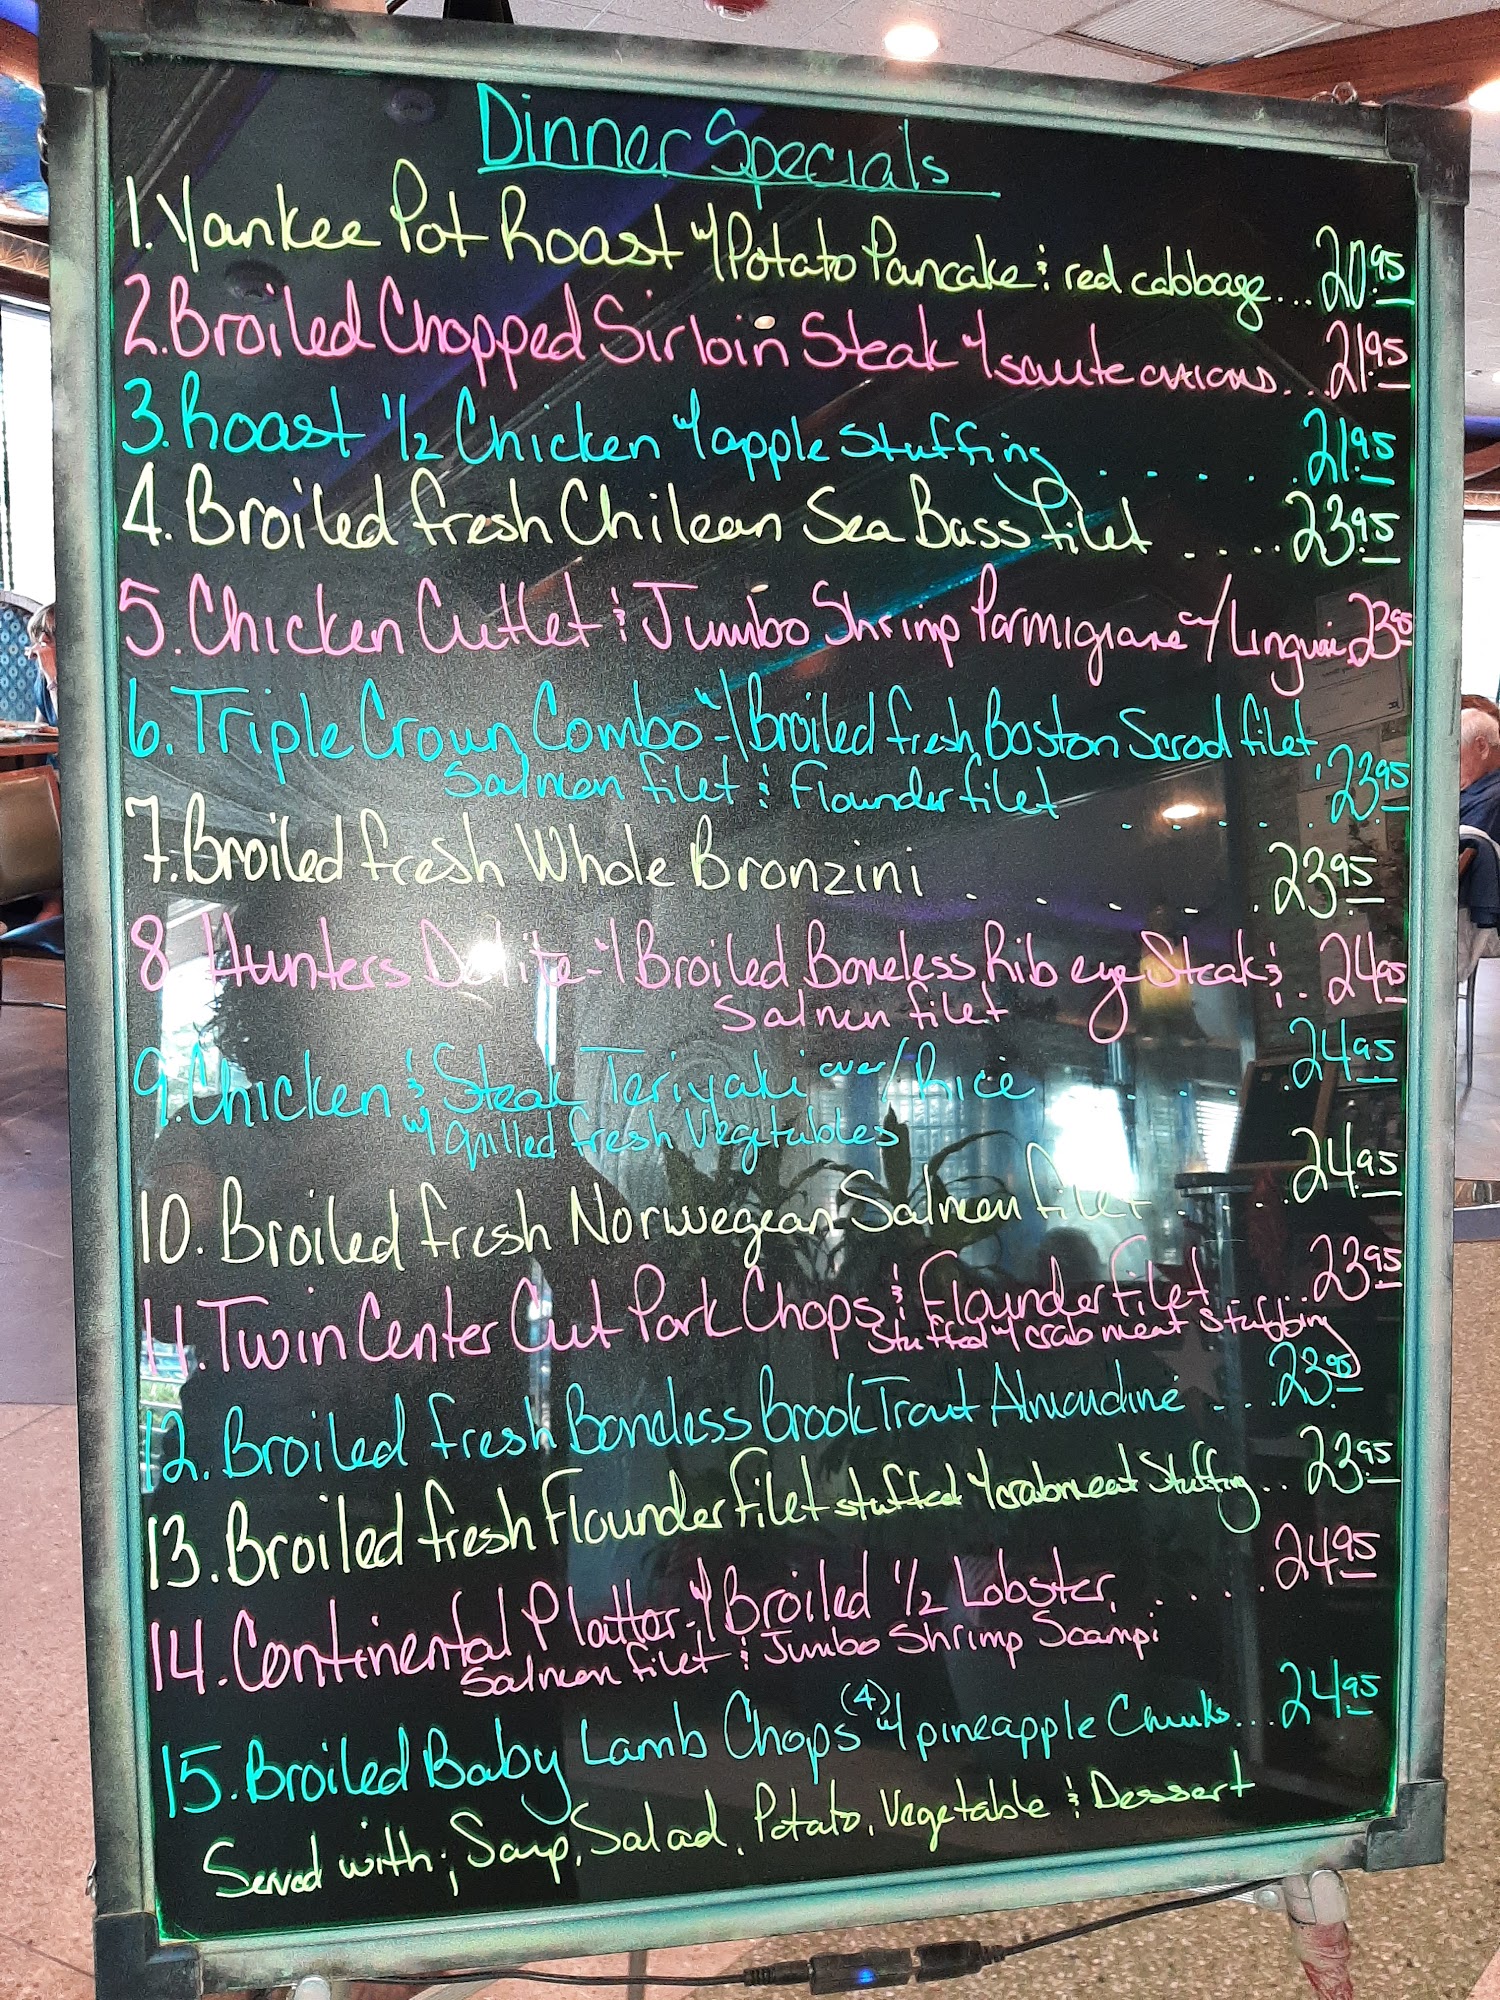 Dinner Specials
1. Yankee Pot Roast w/ Potato Pancake & red cabbage... 20.95
2. Broiled Chopped Sirloin Steak w/ saute onions... 21.95
3. Roast 1/2 Chicken w/ apple Stuffing ...... 21.95
4. Broiled fresh Chilean Sea Bass filet .... 23.95
5. Chicken Cutlet & Jumbo Shrimp Parmigiane w/ Linguini 23.95
6. Triple Crown Combo - w/ Broiled fresh Boston Scrod filet
Salmon filet & Flounder filet ...... 23.95
7. Broiled fresh Whole Bronzini ...... 23.95
8. Hunters Delite - w/ Broiled Boneless Rib eye Steak & .. 24.95
Salmon filet
9. Chicken & Steak Teriyaki over/Rice ..... 24.95
w/ grilled fresh Vegetables
10. Broiled fresh Norwegean Salmon filet ... 24.95
11. Twin Center Cut Pork Chops & Flounder Filet .... 23.95
Stuffed w/ crab meat Stuffing
12. Broiled fresh Boneless Brook Trout Almondine ... 23.95
13. Broiled fresh Flounder Filet stuffed w/ crabmeat Stuffing .. 23.95
14. Continental Platter - w/ Broiled 1/2 Lobster, ..... 24.95
Salmon filet & Jumbo Shrimp Scampi
15. Broiled Baby Lamb Chops (4) w/ pineapple Chunks... 24.95
Served with; Soup, Salad, Potato, Vegetable & Dessert